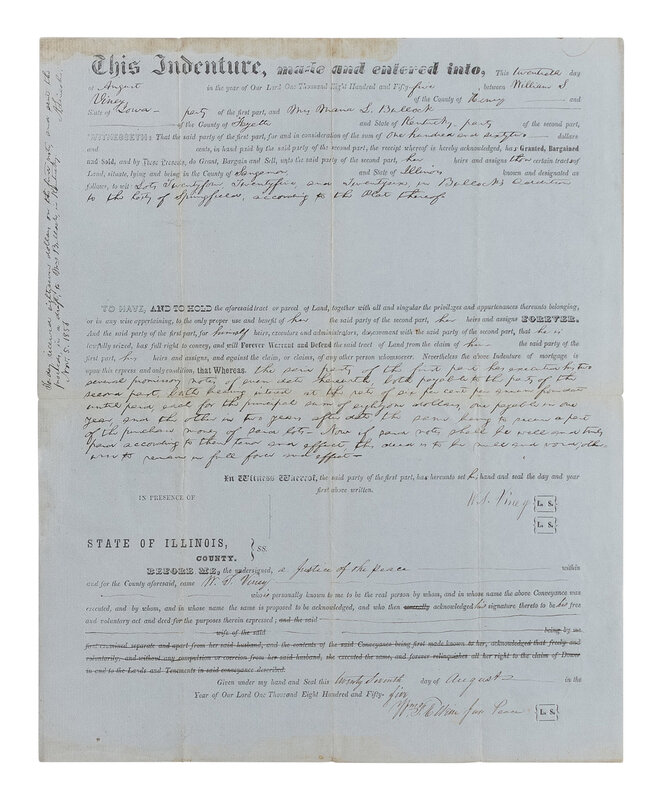 This Indenture, made and entered into, This twentieth day
of August in the year of Our Lord One Thousand Eight Hundred and Fifty-five, between William S.
Viney of the County of Henry and
State of Iowa party of the first part, and Mrs Maria L. Bullock
of the County of Fayette and State of Kentucky party of the second part,
WITNESSETH: That the said party of the first part, for and in consideration of the sum of One hundred and sixty two dollars
and cents, in hand paid by the said party of the second part, the receipt whereof is hereby acknowledged, has Granted, Bargained
and Sold, and by These Presents, do Grant, Bargain and Sell, unto the said party of the second part, her heirs and assigns certain tracts of
Land, situate, lying and being in the County of Sangamon and State of Illinois known and designated as
follows, to wit: Lots Twentyfour Twentyfive, and Twentysix, in Bullock's Addition
to the City of Springfield, according to the Plat thereof
TO HAVE, AND TO HOLD the aforesaid tract or parcel of Land, together with all and singular the privileges and appurtenances thereunto belonging,
or in any wise appertaining, to the only proper use and benefit of her the said party of the second part, her heirs and assigns FOREVER.
And the said party of the first part, for himself heirs, executors and administrators, do, covenant with the said party of the second part, that he is
lawfully seized, has full right to convey, and will Forever Warrant and Defend the said tract of Land from the claim of him the said party of the
first part, his heirs and assigns, and against the claim, or claims, of any other person whomsoever. Nevertheless the above Indenture of mortgage is
upon this express and only condition, that Whereas, the said party of the first part has executed his two
several promissory notes of even date herewith, both payable to the party of the
second part, both bearing interest at the rate of six per cent per annum from date
until paid each for the principal sum of eightyone dollars, one payable in one
year, and the other in two years after date the same being to secure a part
of the purchase money of said lots. Now if said notes shall be well and truly
paid according to their tenor and effect this deed is to be null and void, other
wise to remain in full force and effect
In Witness Whereof, the said party of the first part, has hereunto set his hand and seal the day and year
first above written.
IN PRESENCE OF
W. S. Viney L. S.
L. S.
STATE OF ILLINOIS,
COUNTY. SS.
BEFORE ME, the undersigned, a Justice of the peace within
and for the County aforesaid, came W. S. Viney
who is personally known to me to be the real person by whom, and in whose name the above Conveyance was
executed, and by whom, and in whose name the same is proposed to be acknowledged, and who then severally acknowledged his signature thereto to be his free
and voluntary act and deed for the purposes therein expressed; and the said
wife of the said being by me
first examined separate and apart from her said husband, and the contents of the said Conveyance being first made known to her, acknowledged that freely and
voluntarily, and without any compulsion or coercion from her said husband, she executed the same, and forever relinquishes all her right to the claim of Dower
in and to the Lands and Tenements in said conveyance described.
Given under my hand and Seal this twenty seventh day of August in the
Year of Our Lord One Thousand Eight Hundred and Fifty-five
L. S.
received eightyone dollars on the first note, and sent the
Nov. 5. 1856